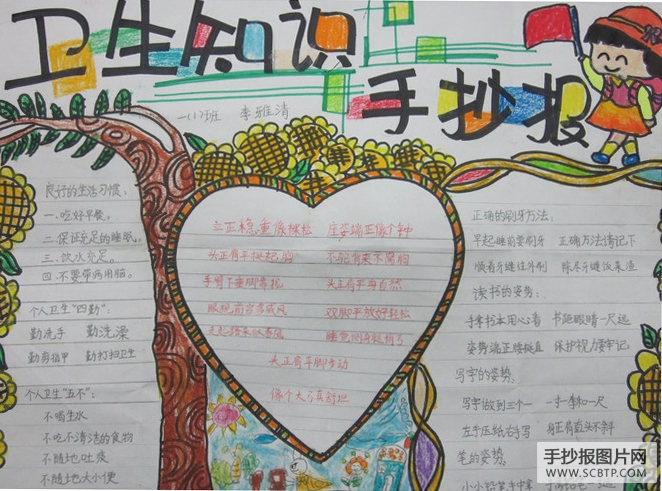 卫生知识
手抄报
一(1)班 李雅清
良好的生活习惯:
一.吃好早餐。
二.保证充足的睡眠。
三.饮水充足。
四.不要带病用脑。
个人卫生“四勤”:
勤洗手 勤洗澡
勤剪指甲 勤打扫卫生
个人卫生“五不”:
不喝生水
不吃不清洁的食物
不随地吐痰
不随地大小便
立正稳重像棵松 坐姿端正像个钟
头正肩平挺起胸
手臂下垂
头正肩平
双脚平放好轻松
头正肩平脚
像个大弓真舒坦
正确的刷牙方法:
早起睡前要刷牙 正确方法请记下
顺着牙缝往外刷 除尽牙缝饭菜渣
读书的姿势:
手拿书本用心看 书距眼睛一尺远
姿势端正腰挺直 保护视力要牢记
写字的姿势:
写字做到三个一 一寸一拳和一尺
左手压纸右手写 身正肩直头不斜
笔的姿势:
小小铅笔手中拿
手抄报图片网
WWW.SCBTP.COM